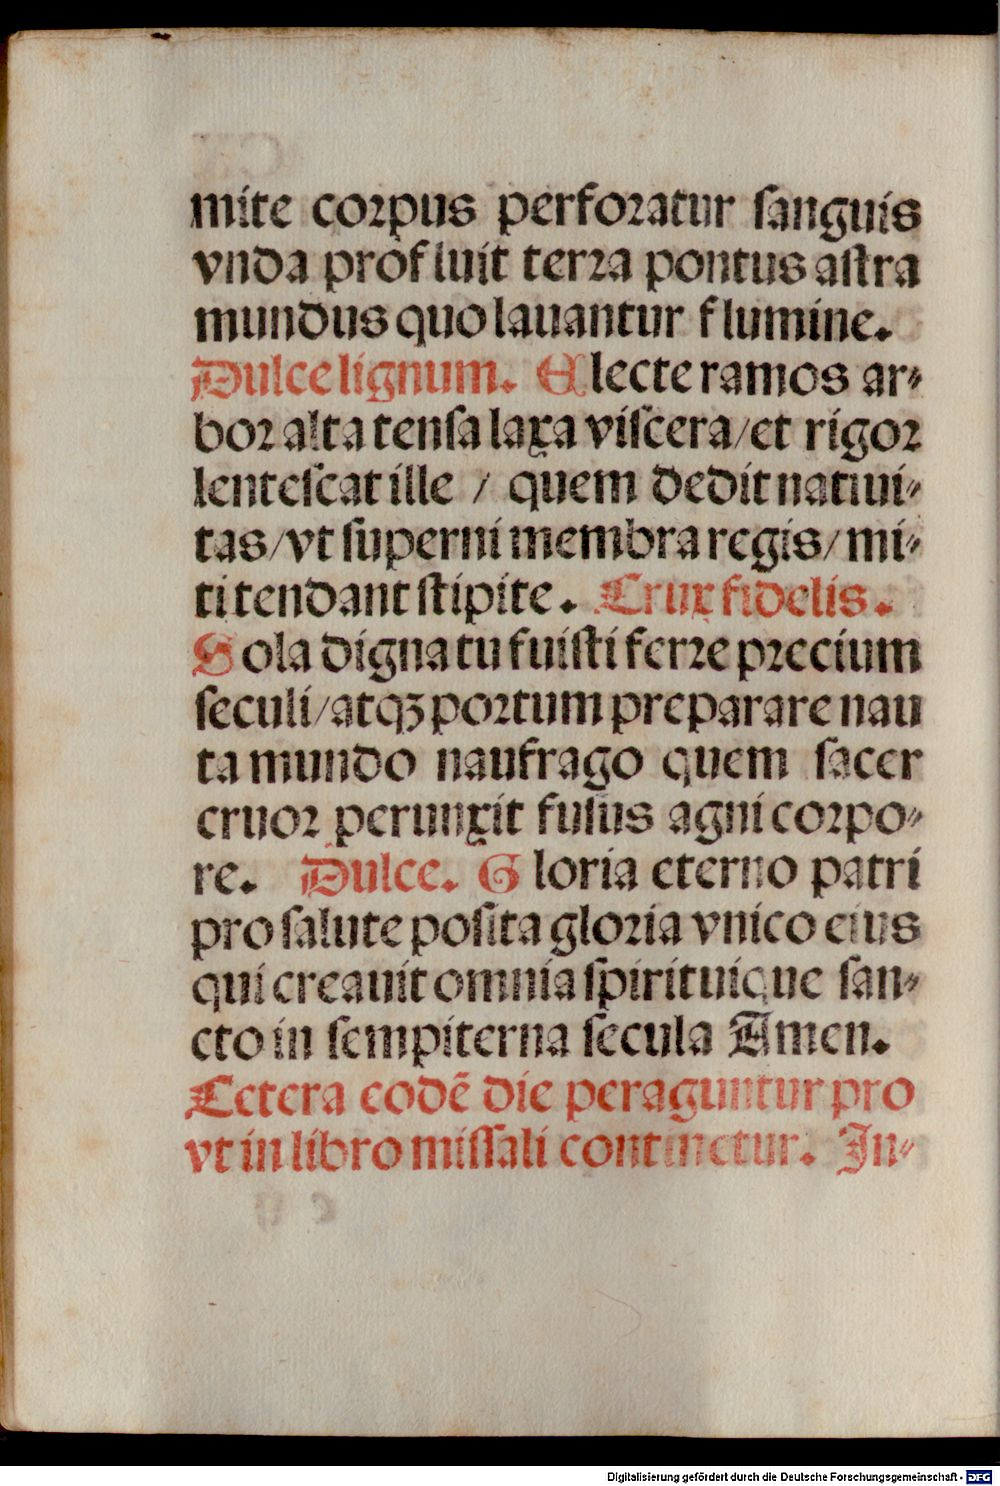 mite corpus perforatur ſanguis
vnda profluit terra pontus aſtra
mundus quo lauantur flumine.
Dulce lignum. Electe ramos ar⸗
bor alta tenſa laxa viſcera/et rigor
lenteſcat ille / quem dedit natiui⸗
tas/vt ſuperni membra regis/mi⸗
ti tendant ſtipite. Crux fidelis.
Sola digna tu fuiſti ferre precium
ſeculi/atqꝫ portum preparare nau
ta mundo naufrago quem ſacer
cruor perunxit fuſus agni corpo⸗
re. Dulce. Gloria eterno patri
pro ſalute poſita gloria vnico eius
qui creauit omnia ſpirituique ſan⸗
cto in ſempiterna ſecula Amen.
Cetera eodē die peraguntur pro
vt in libro miſſali continetur. In⸗
Digitalisierung gefördert durch die Deutsche Forschungsgemeinschaft - DFG